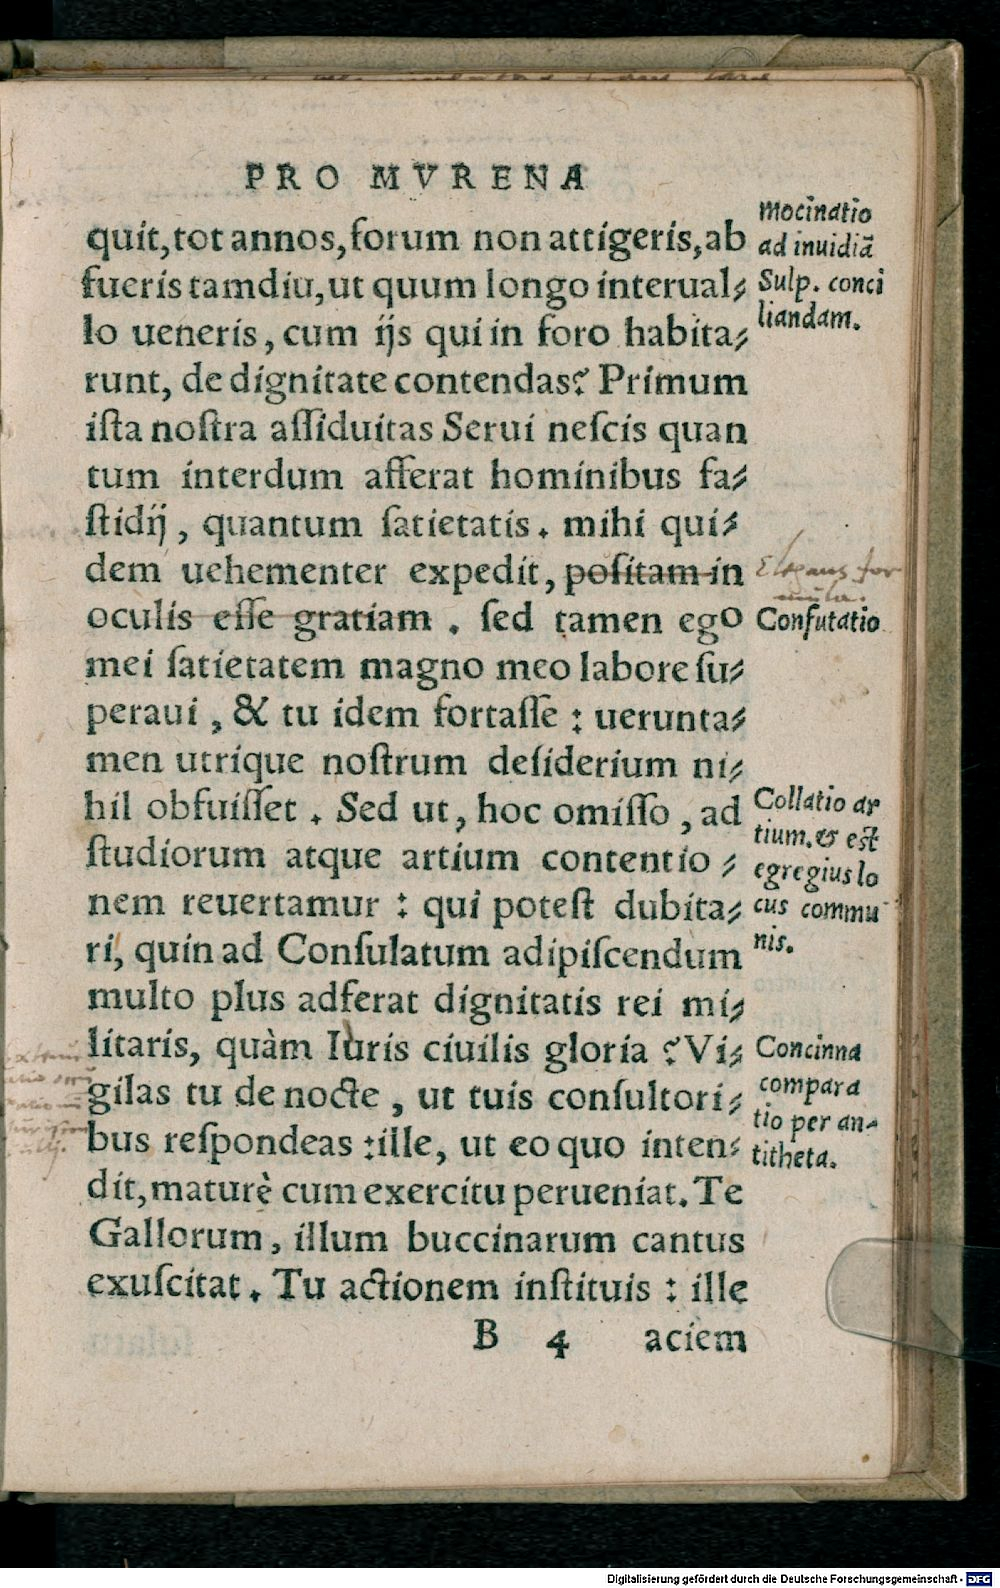 PRO MVRENA
quit, tot annos, forum non attigeris, ab
fueris tamdiu, ut quum longo interual⸗
lo ueneris, cum ijs qui in foro habita⸗
runt, de dignitate contendas? Primum
iſta noſtra aſſiduitas Serui neſcis quan
tum interdum afferat hominibus fa⸗
ſtidij, quantum ſatietatis. mihi qui⸗
dem uehementer expedit, poſitam in
oculis eſſe gratiam. ſed tamen ego
mei ſatietatem magno meo labore ſu⸗
peraui, & tu idem fortaſſe: uerunta⸗
men utrique noſtrum deſiderium ni⸗
hil obfuiſſet. Sed ut, hoc omiſſo, ad
ſtudiorum atque artium contentio⸗
nem reuertamur: qui poteſt dubita⸗
ri, quin ad Conſulatum adipiſcendum
multo plus adferat dignitatis rei mi⸗
litaris, quàm Iuris ciuilis gloria? Vi⸗
gilas tu de nocte, ut tuis conſultori⸗
bus reſpondeas: ille, ut eo quo inten⸗
dit, maturè cum exercitu perueniat. Te
Gallorum, illum buccinarum cantus
exuſcitat. Tu actionem inſtituis: ille
B 4 aciem
mocinatio
ad inuidiã
Sulp. conci
liandam.
Elegans for
mula.
Confutatio
Collatio ar
tium. & est
egregius lo
cus commu
nis.
Concinna
compara
tio per an-
titheta.
Digitalisierung gefördert durch die Deutsche Forschungsgemeinschaft - DFG